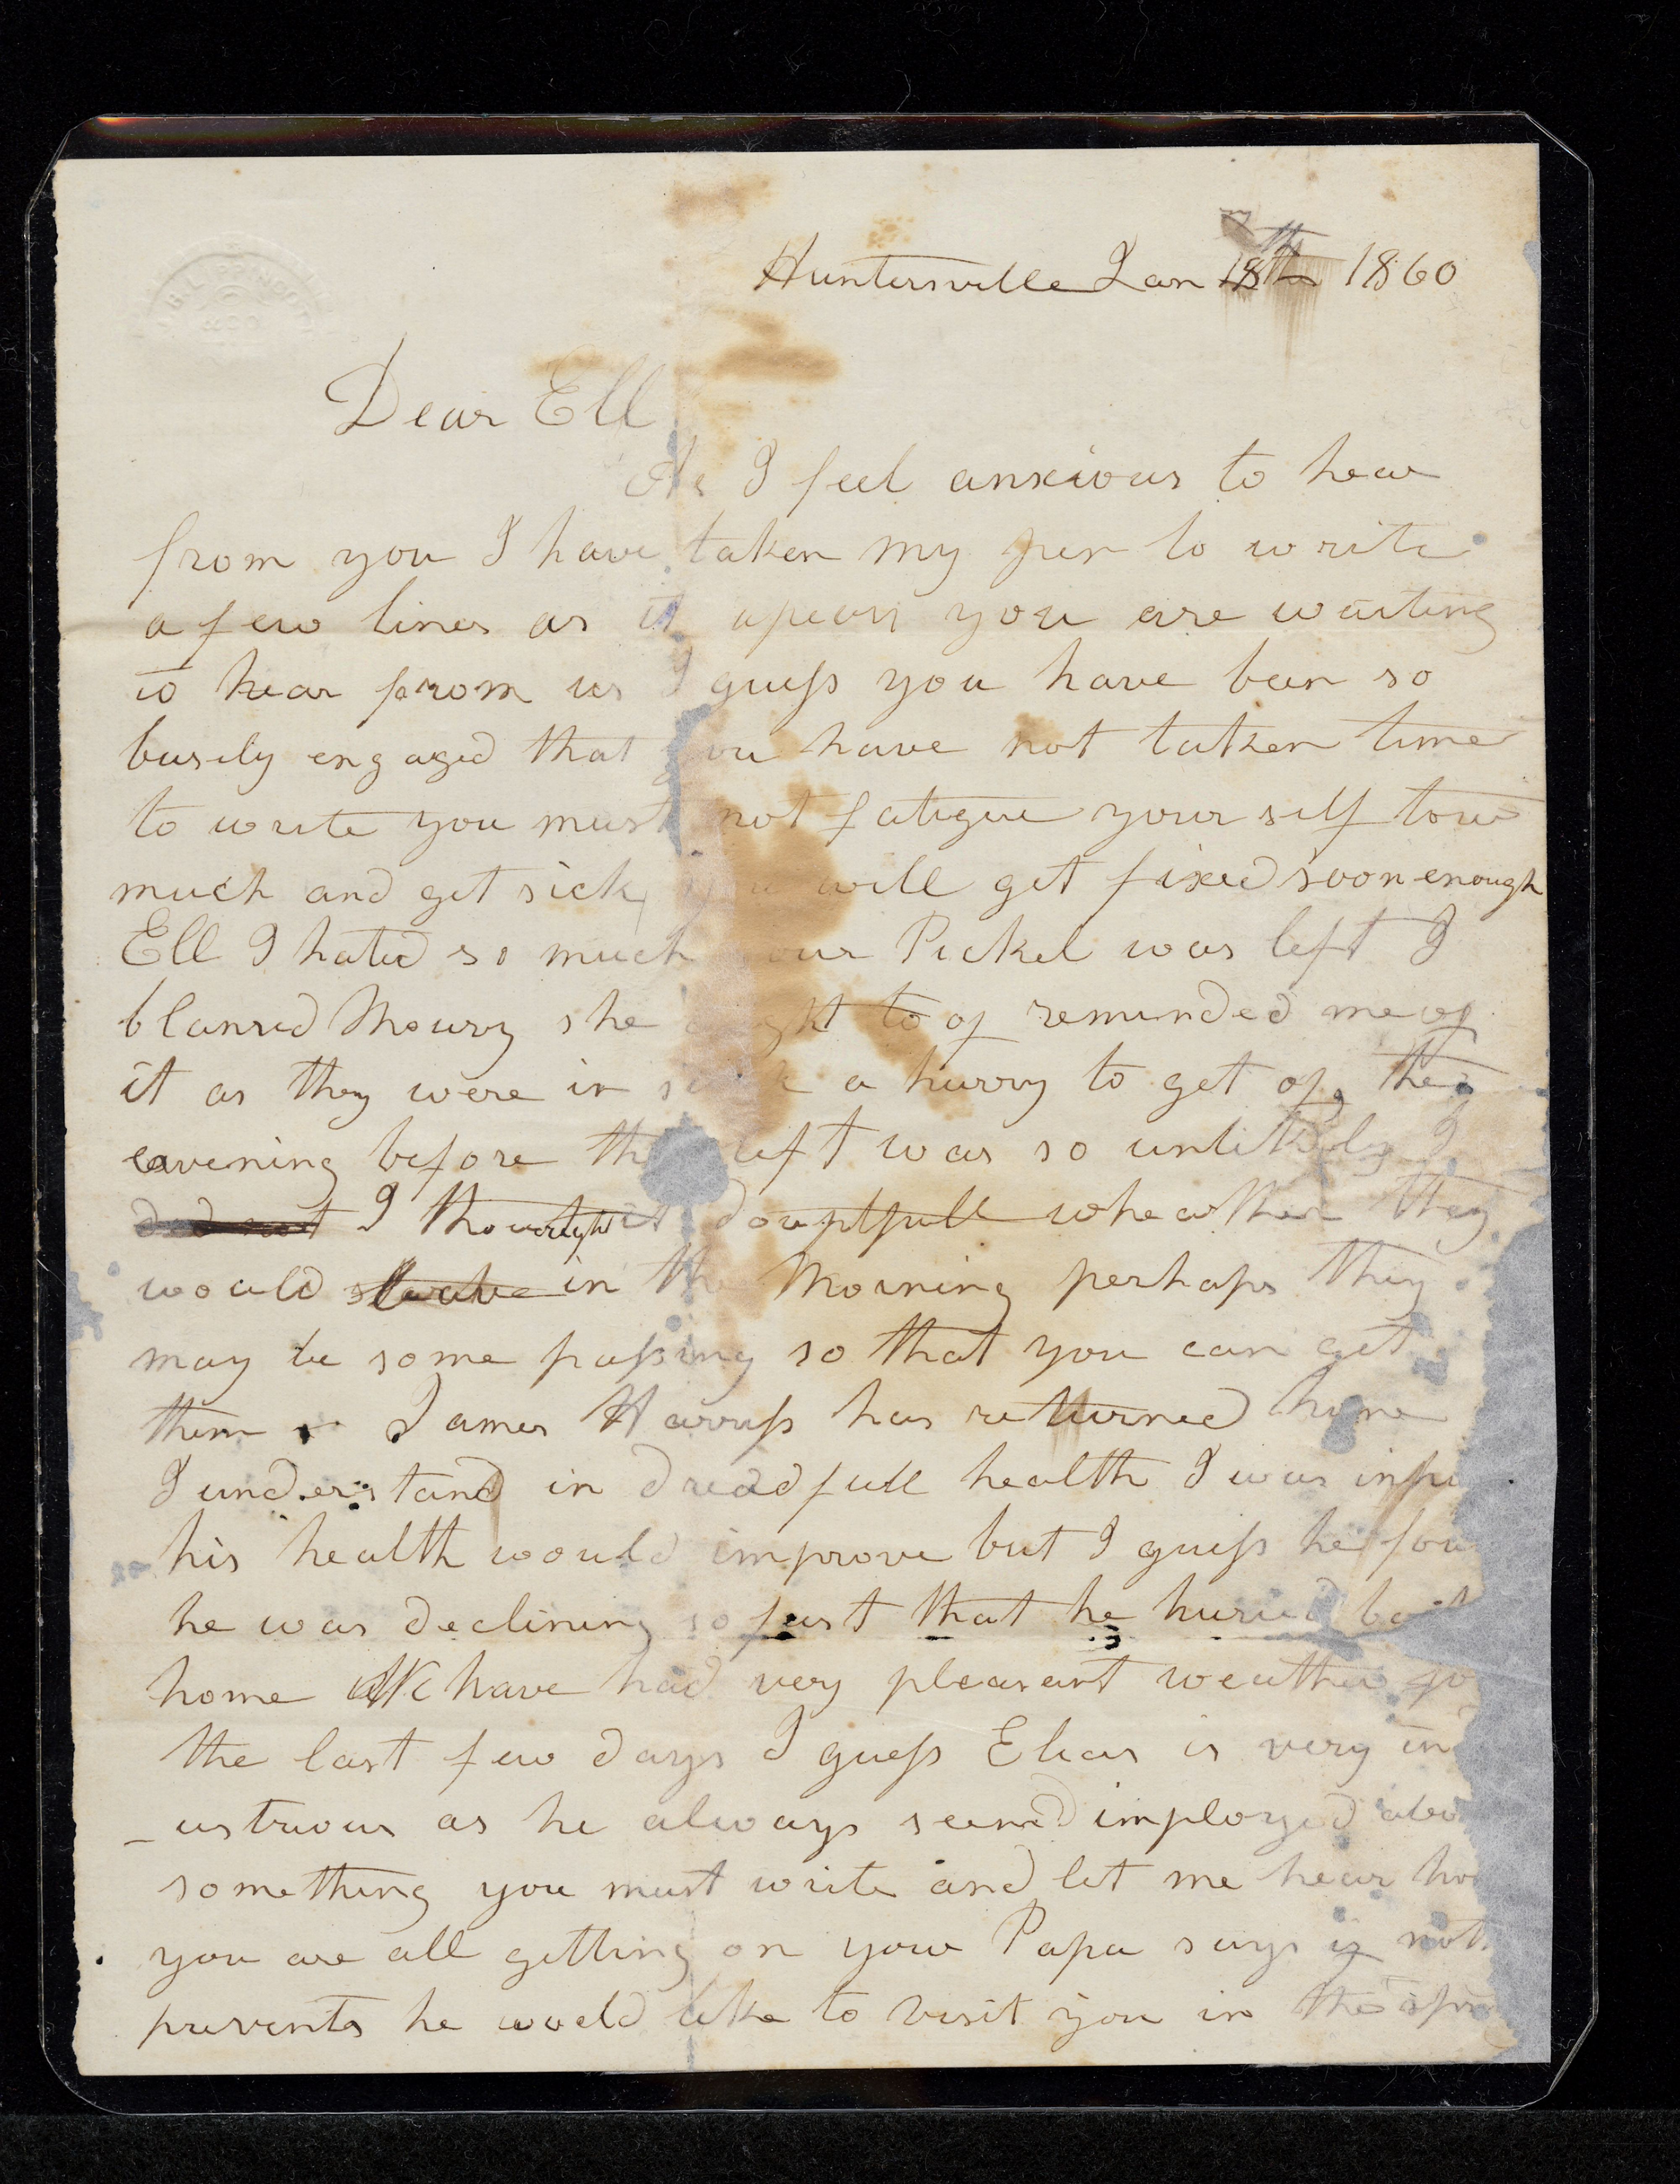 Huntersville Jan 18th 1860
Dear Ell
As I feel anxious to hear
from you I have taken my pen to write
a few lines as it apears you are waiting
to hear from us I guess you have been so
busily engaged that you have not taken time
to write you must not fatigue your self tow
much and get sick you will get fixed soon enough
Ell I hated so much your Pickel was left I
blamed Moury she ought to of reminded me of
it as they were in such a hurry to get of, the
eavening before they left was so unlikely I
did not I thought it douptfull wheather they
would in the Morning perhaps they
may be some passing so that you can get
them James Harriss has returned home
I understand in dreadfull health I was in
his health would improve but I guess he
he was declining so fast that he huried
home We have had very pleasant weather
the last few days I guess Elias is very ind
ustrious as he always seemed imployed
something you must write and let me hear
you are all getting on your Papa says if
prevents he would like to visit you in the